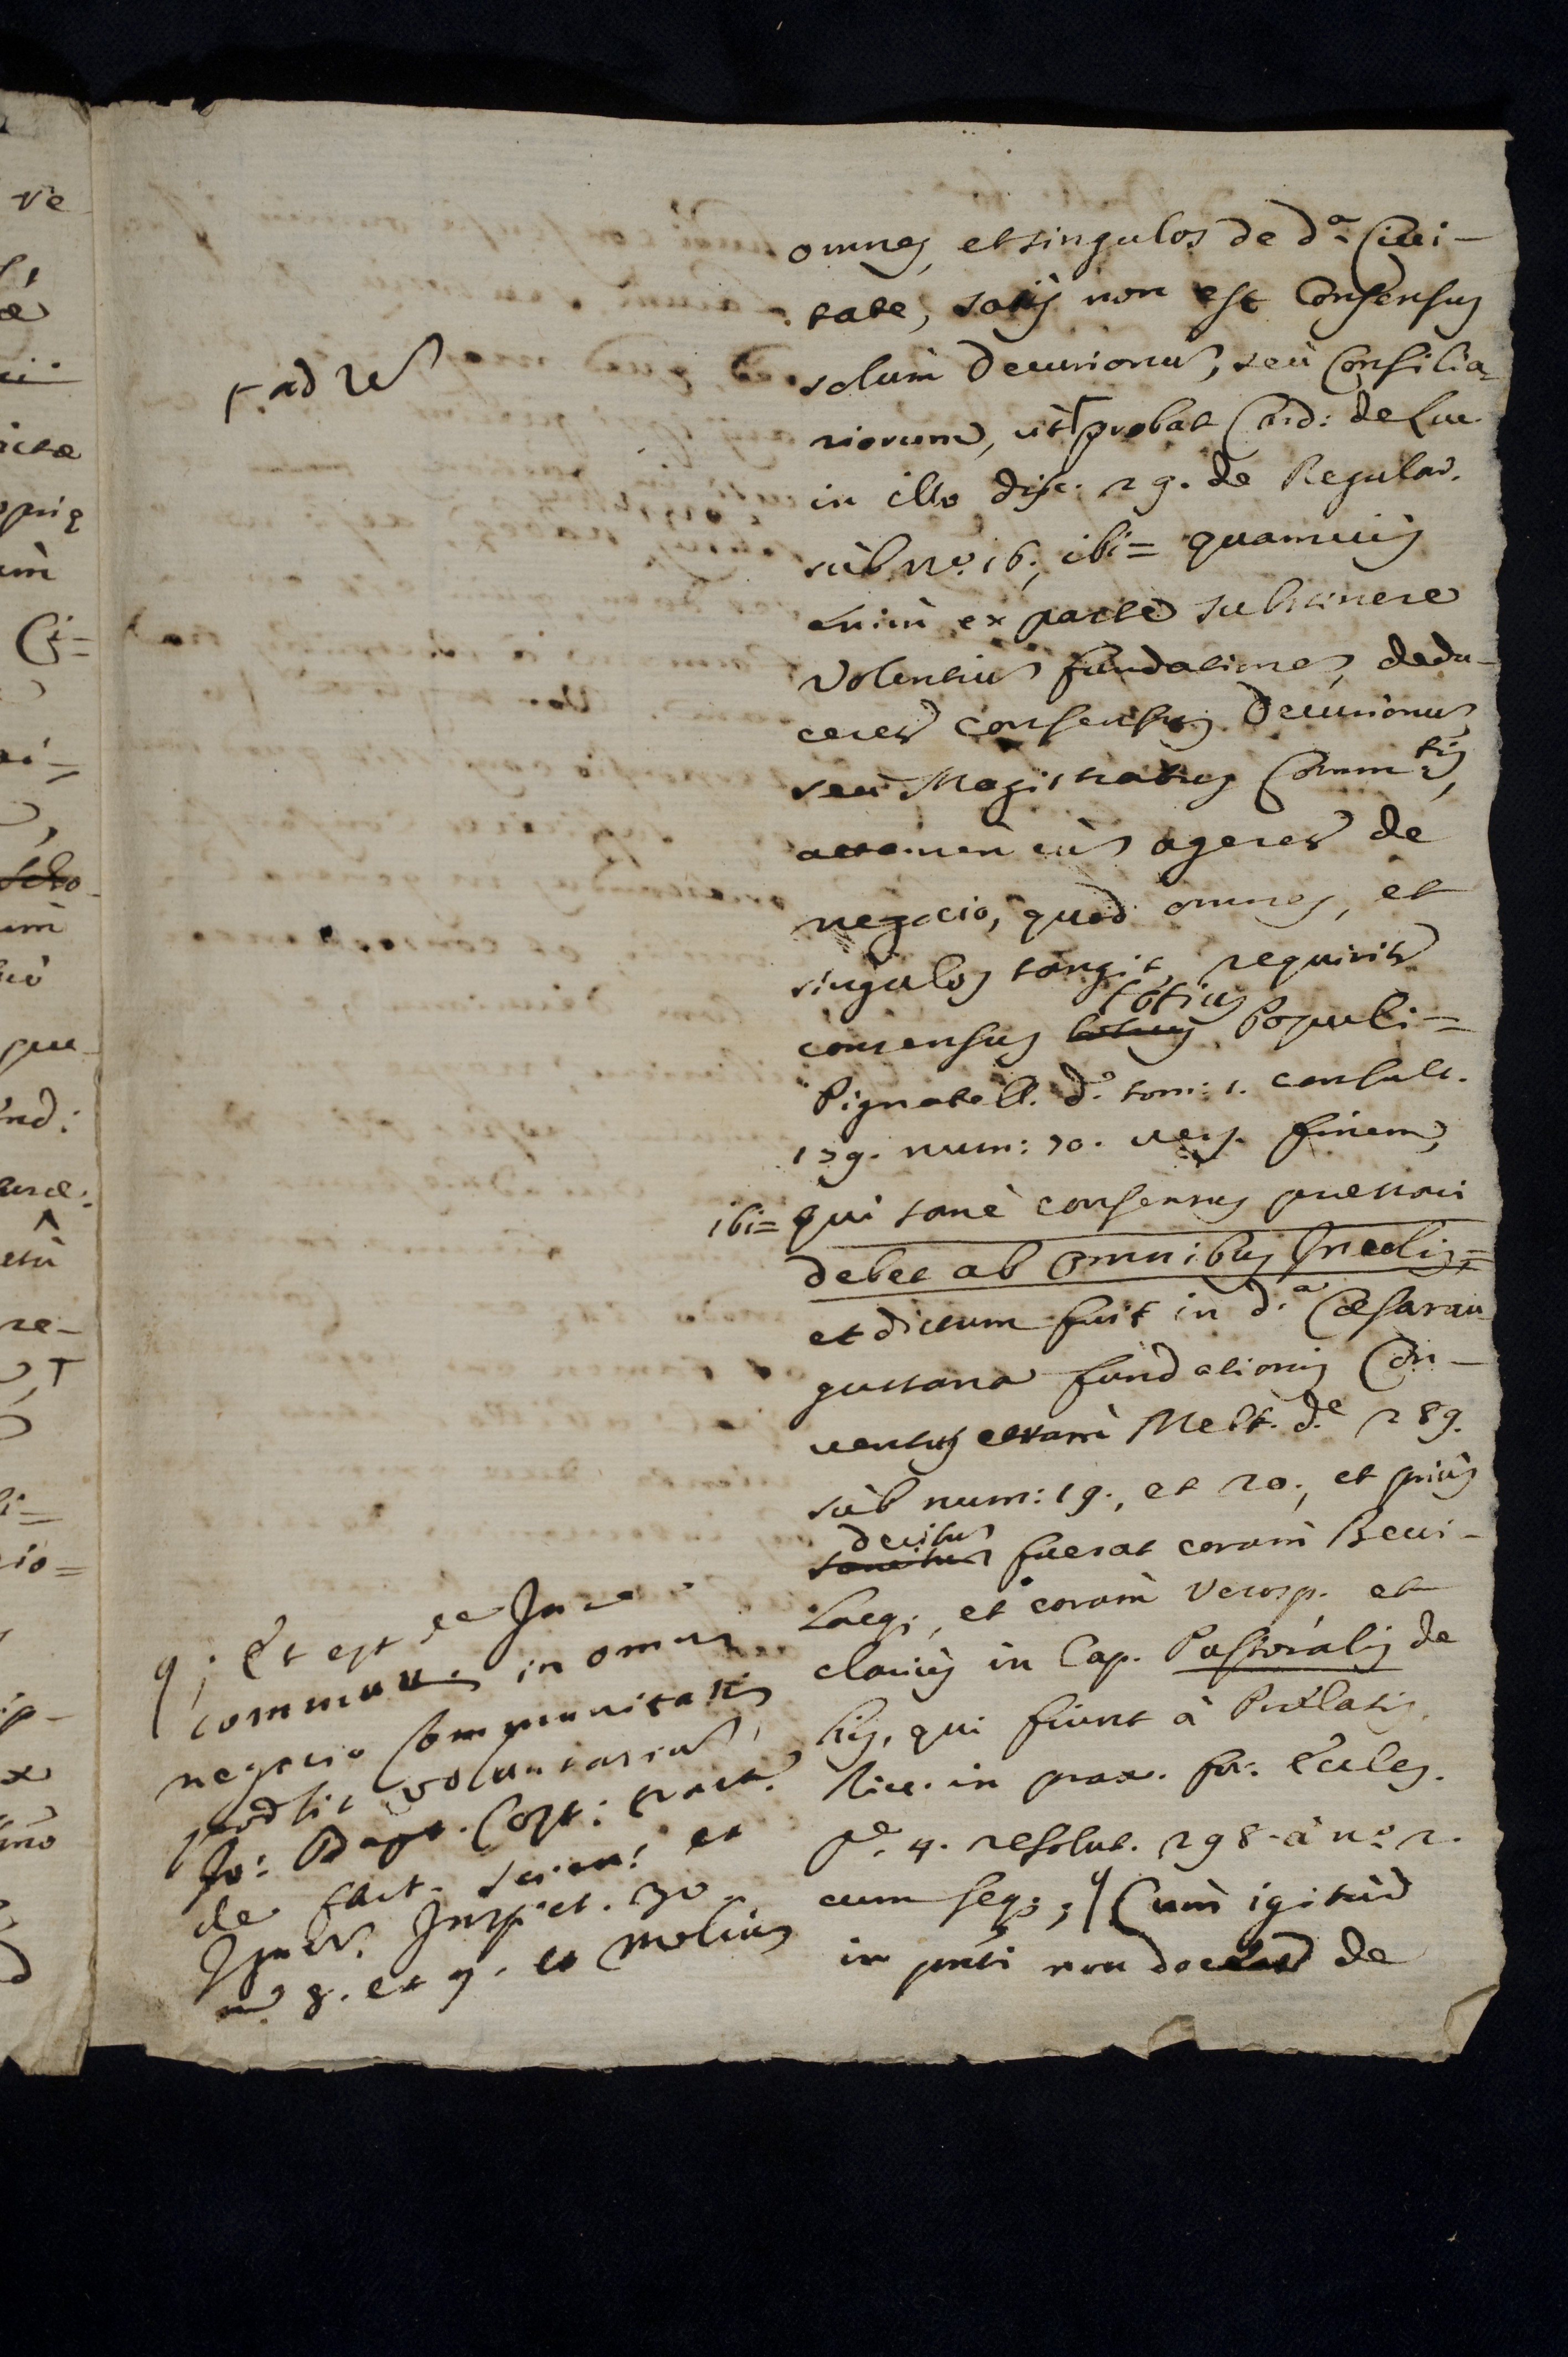 omnes, et singulos de d.a Ciui-
tate, satis non est Consensus
solum Decurionum, seù Consilia-
riorum, ut Ͳ probat Card: de Luc.
⊢ ad rem
in illo disc. 29. de Regular.
sùb n.o 16., ibi= quamuis
enim ex parte substinere
Volentium fundationem, dedu-
ceret consensus Decurionum
seù Magistratus Comm.tis,
attamen cum ageret de
negocio, quod omnes, et
singulos tangit, requirit
consensus totius Populi=
Pignatell. d.o tom: 1. consult.
179. num: 70. vers. finem,
ibi= qui sanè consensus praestari
debet ab omnibus Incolis=
et dictum fuit in d.a Caesarau
gustana fundationis Con-
uentus coram Melt. d.e 289.
sùb num: 19., et 20., et priùs
decisum fuerat coram Beui-
lacq., et coram Verosp. et
clariùs in Cap. Pastoralis de
his, qui fiunt à Praelatis.
Ricc. in prax. for. Eccles.
p.e 4. resolut. 298. à n.o 2.
cum seqq.; q Cum igitur
in pnti non docetur de
q; Et est de Jure
commune, in omni
negocio Communitatis
Jo: Bapt. Cost: tract.
de fact. scien: et
Ignor. Inspect. 30.
n. 8. et 9. et melius